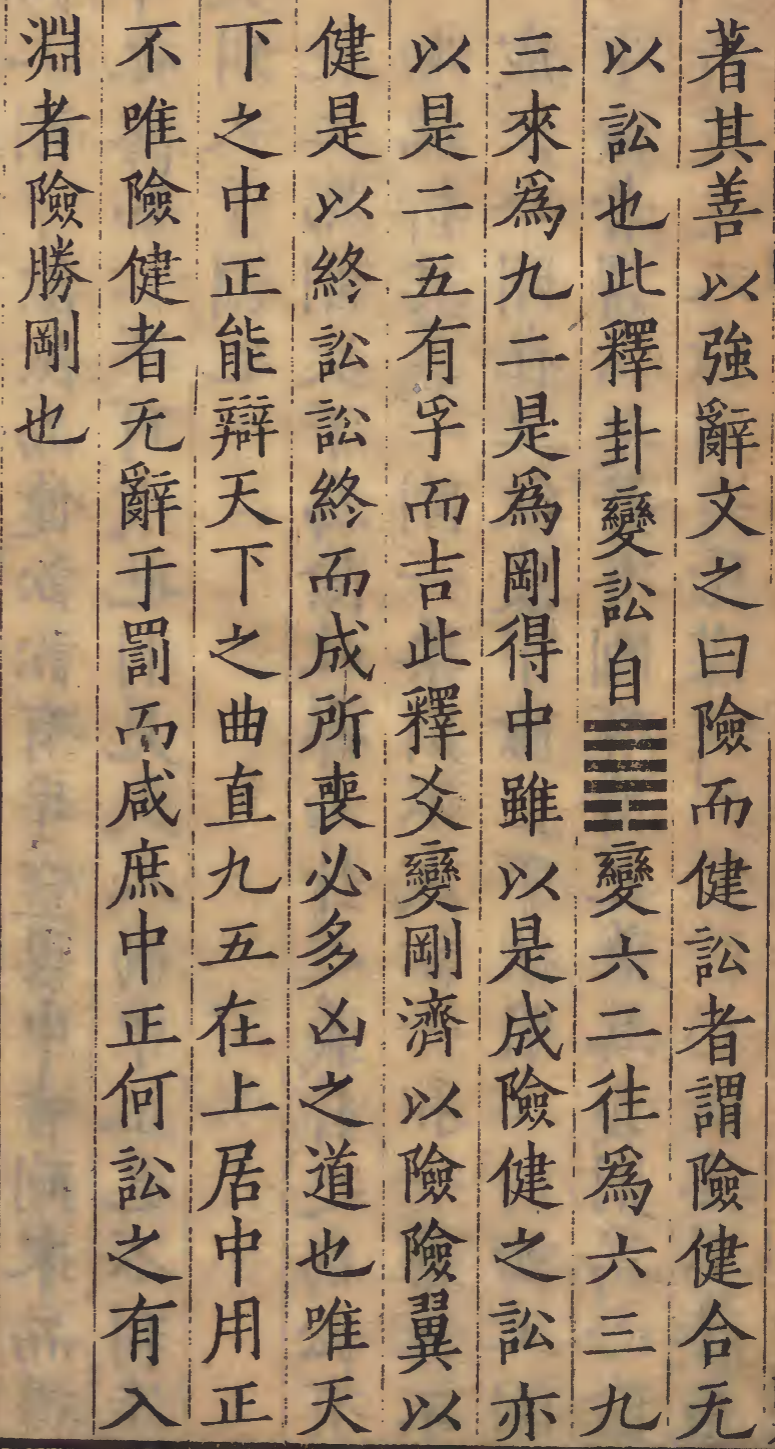 著其善以強辭文之曰險而健訟者謂險健合无
以訟也此釋卦變訟自䷠變六二往爲六三九
三來爲九二是爲剛得中雖以是成險健之訟亦
以是二五有孚而吉此釋爻變剛濟以險險翼以
健是以終訟訟終而成所喪必多凶之道也唯天
下之中正能辯天下之曲直九五在上居中用正
不唯險健者无辭于罰而咸庶中正何訟之有入
淵者險勝剛也